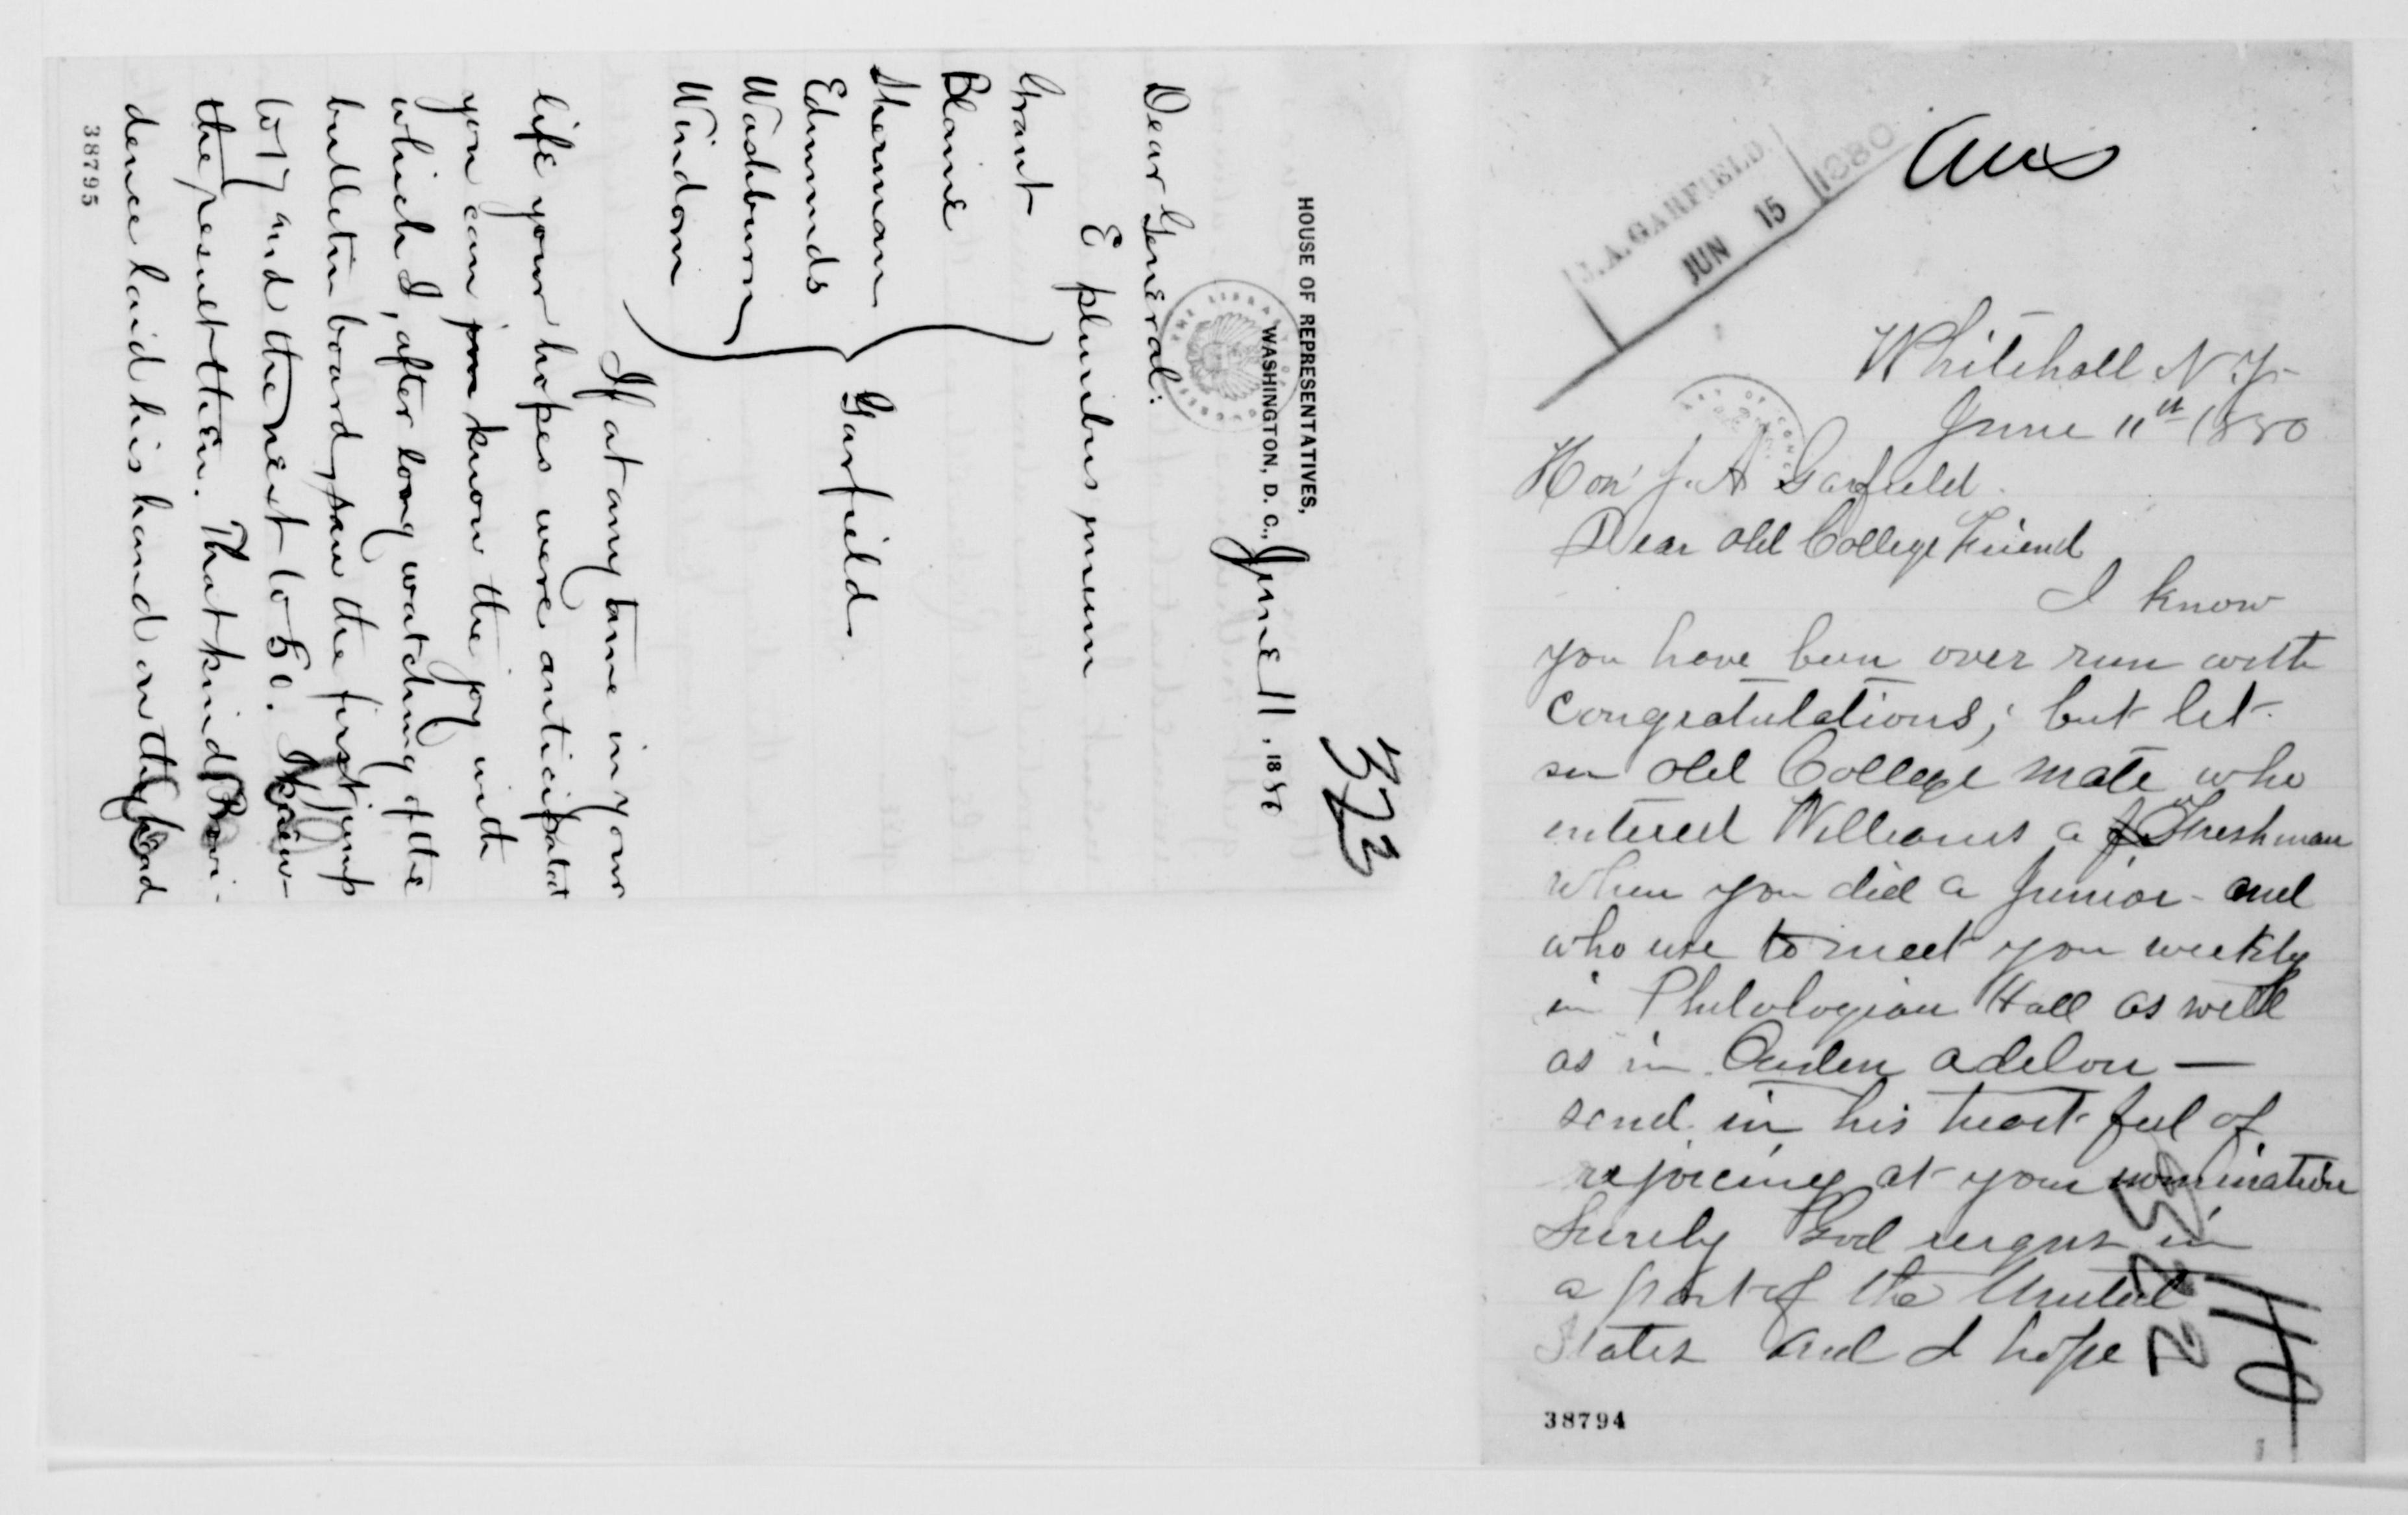 HOUSE OF REPRESENTATIVES,
WASHINGTON, D. C., June 11, 1880
373
Dear General:
E pluribus unum
Grant
Blaine
Sherman
Edmunds
Washburn
Windom
Garfield
If at any time in your
life your hopes were anticipated
you can know the joy with
which I, after long watching of the
bulletin board, saw the first jump
to 17 and the next to 50. I knew
the result then. That kind Provi-
dence laid his hand on the head
38795
Ans
J. A. GARFIELD.
JUN 15 1880
Whitehall N.Y.
June 11th 1880
Hon' J. A Garfield.
Dear Old College Friend
I know
you have been over run with
Congratulations; but let
an old College mate who
entered Williams a Freshman
when you did a Junior - and
who use to meet you weekly
in Philologian Hall as well
as in Ouden adelon —
send in his heart full of
rejoicing at your nomination
Surely God reigns in
a part of the United
States and I hope
38794